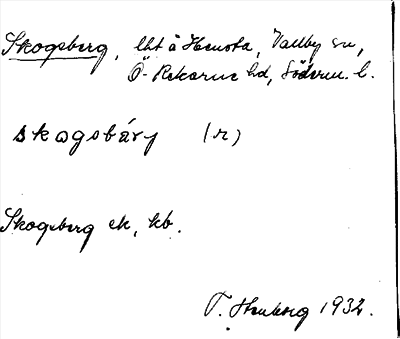 Skogsberg, lht å Hemsta, Vallby sn,
Ö-Rekarne hd, Söderm. l.
skogsbárj (r)
Skogsberg ek, kb.
T. 1932.